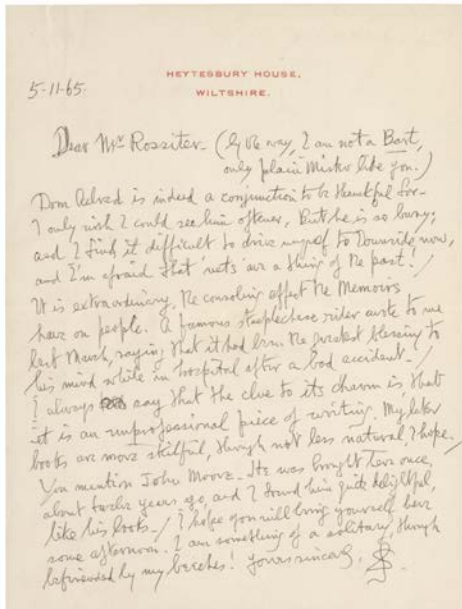 HEYTESBURY HOUSE,
WILTSHIRE.
5-11-65.
Dear Mr Rossiter - (By the way, I am not a Bart,
only plain Mister like you.)
Dom Aelred is indeed a conjunction to be thankful for -
I only wish I could see him oftener, But he is so busy;
and I find it difficult to drive myself to Downside now,
and I'm afraid that 'nets' are a thing of the past! /
It is extraordinary, the consoling effect the Memoirs
have on people. A famous steeplechase rider wrote to me
last March, saying that it had been the greatest blessing to
his mind while in hospital after a bad accident - /
I always say that the clue to its charm is that
it is an unprofessional piece of writing. My later
books are more skilful, though not less natural I hope.
You mention John Moore - He was brought here once,
about twelve years ago, and I found him quite delightful,
like his books - / I hope you will bring yourself here
some afternoon. I am something of a solitary, though
befriended by my beeches! Yours sincerely,
SS